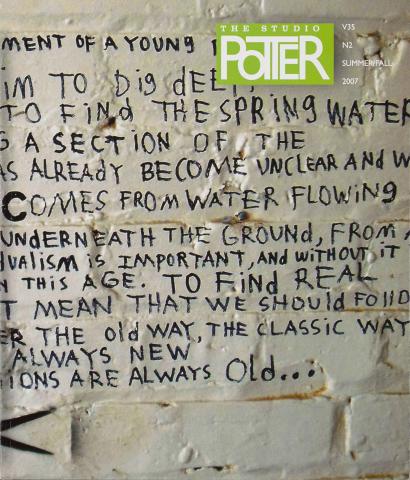 THE STUDIO
POTTER
V35
N2
SUMMER/FALL
2007
MENT OF A YOUNG
IM TO Dig dEEP,
TO FiNd THE SPRING WATER
A SECTION OF THE
AS ALREAdY BECOME UNCLEAR ANd W
COMES FROM WATER FLOWING
UNdERNEATH THE GROUNd, FROM
dUALISM is IMPORTANT, ANd WITHOUT iT
N THIS AGE. TO FiNd REAL
T MEAN THAT WE SHOULD FOllO
ER THE Old WAY, THE CLASSIC WAY
ALWAYS NEW
IONS ARE ALWAYS Old...